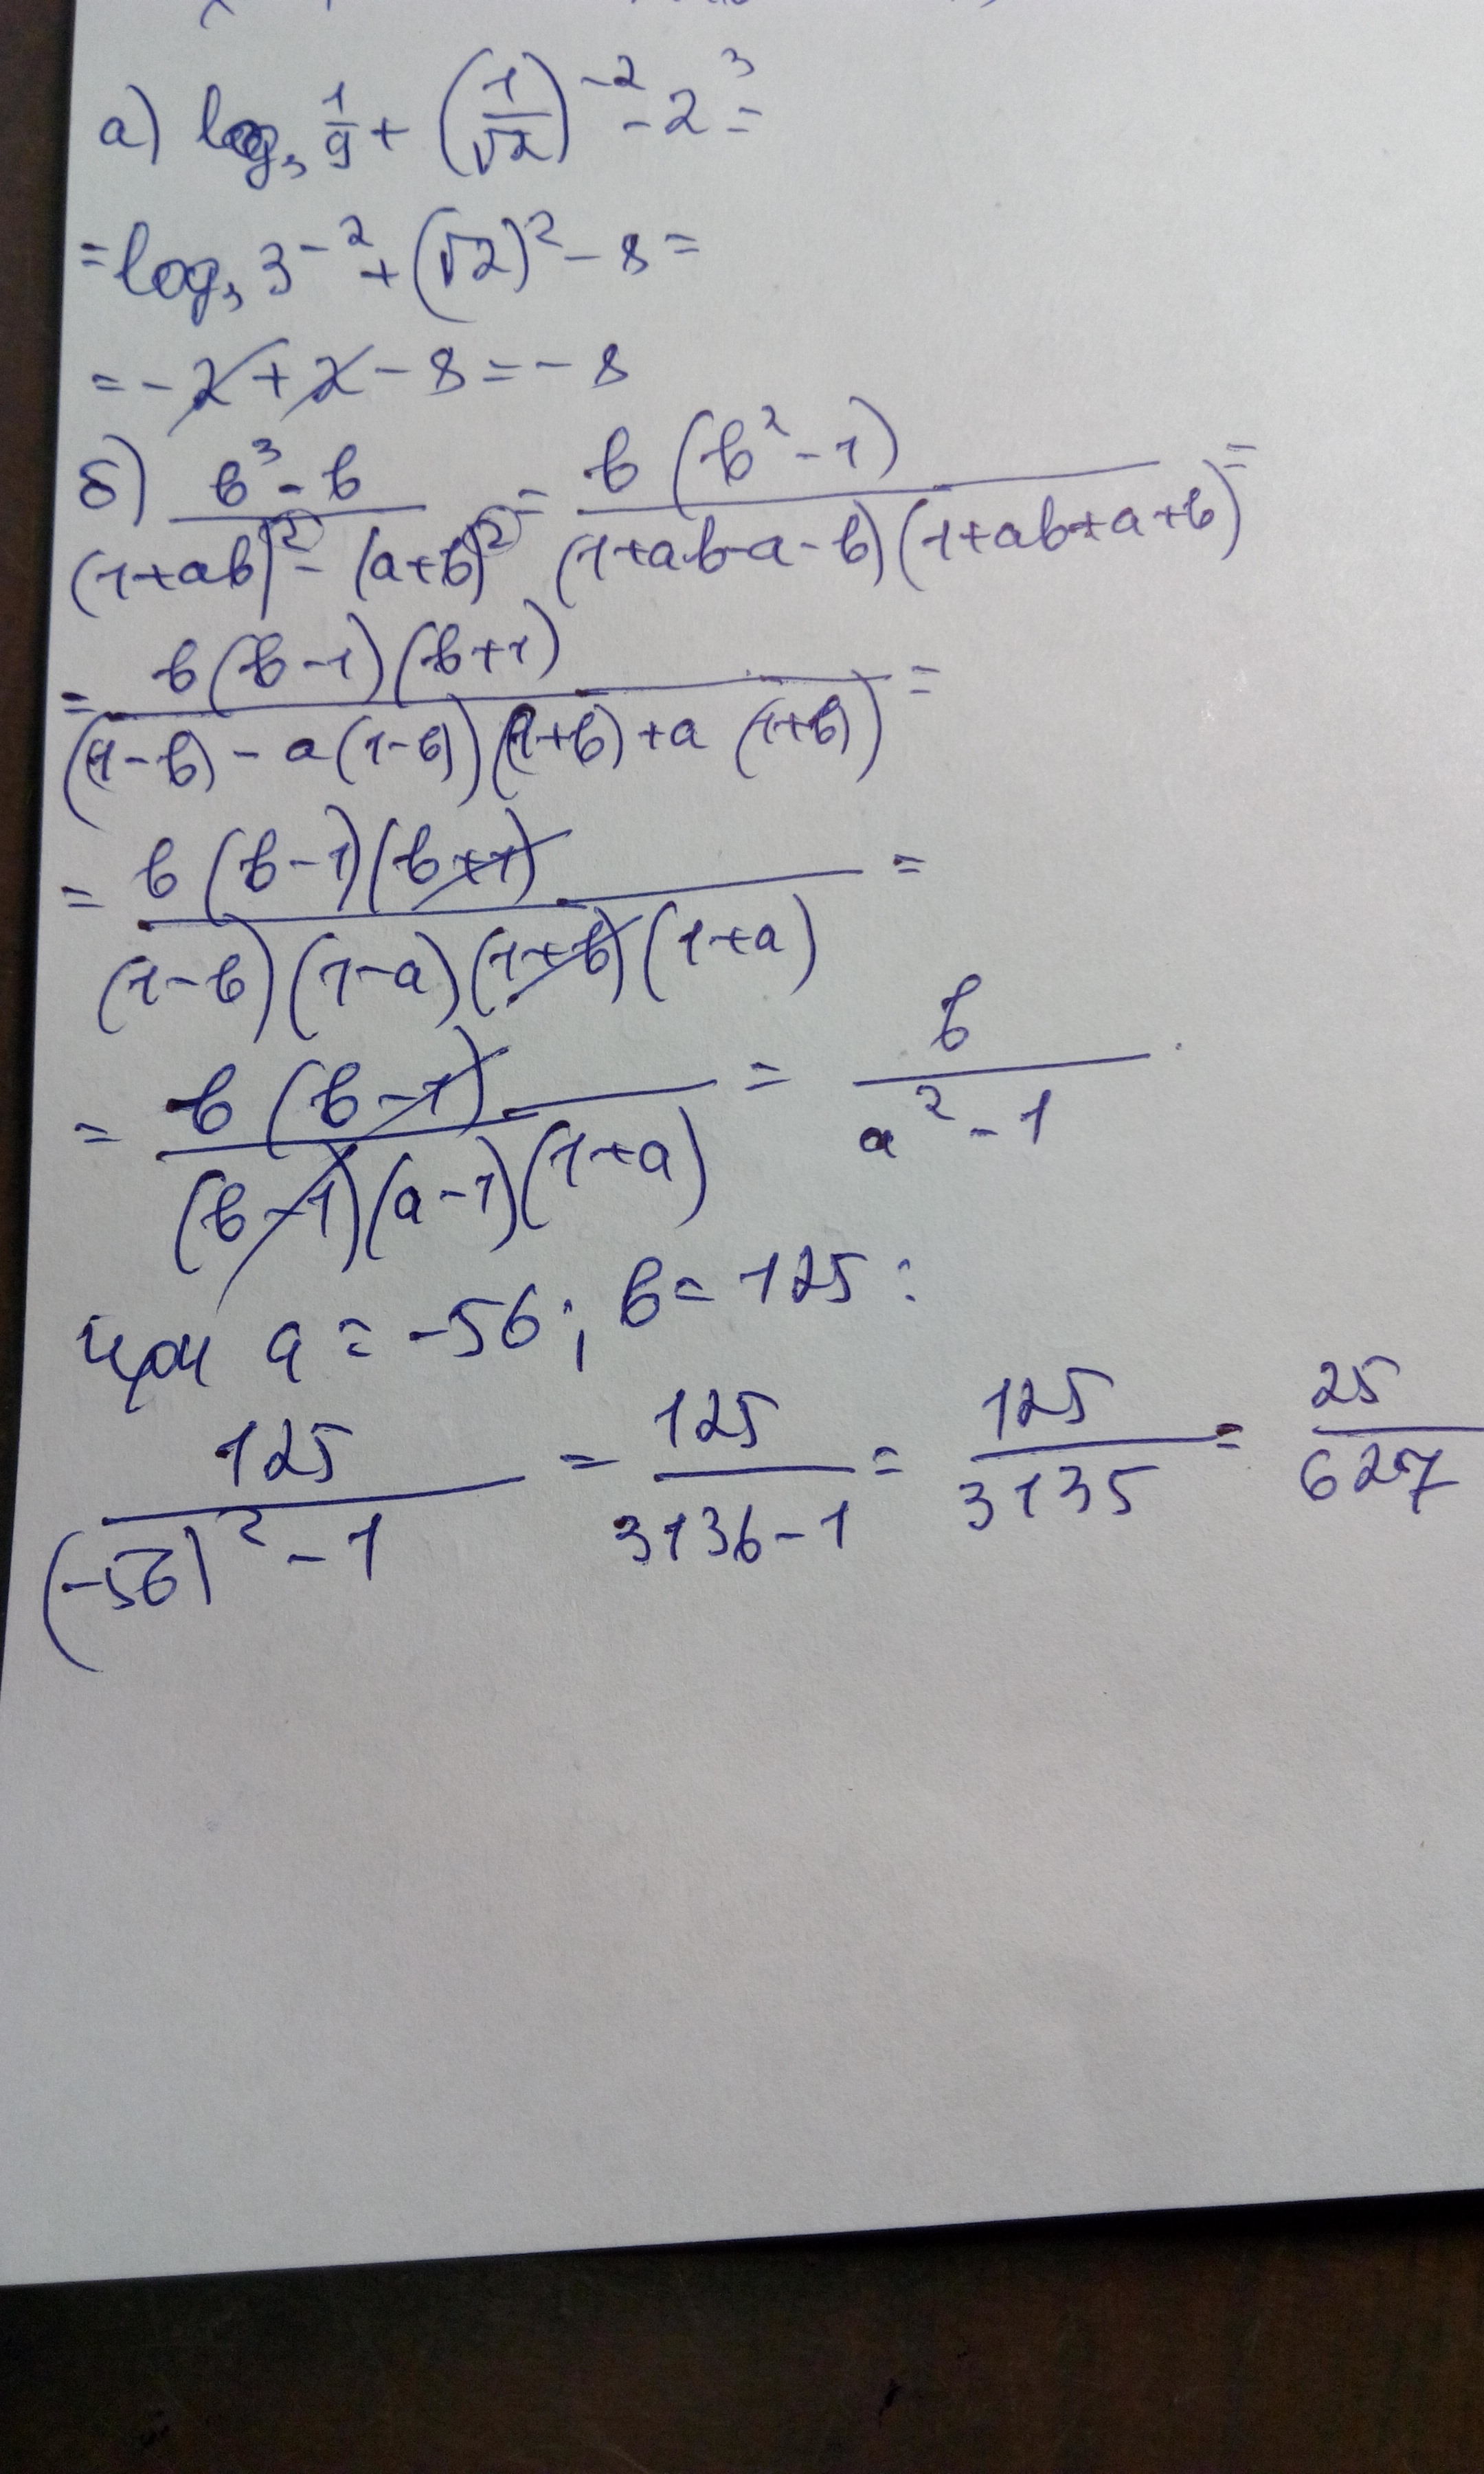 а) log₃ 1/9 + (1/√2)⁻² - 2³ =
= log₃ 3⁻² + (√2)² - 8 =
= -2 + 2 - 8 = -8
б) (b³ - b)/((1+ab)² - (a+b)²) = b(b² - 1)/((1+ab-a-b)(1+ab+a+b)) =
= b(b-1)(b+1)/((1-b) - a(1-b))((1+b) + a(1+b)) =
= b(b-1)(b+1)/((1-b)(1-a)(1+b)(1+a)) =
= b(b-1)/((b-1)(a-1)(1+a)) = b/(a² - 1).
при a = -56; b = 125:
125/((-56)² - 1) = 125/(3136-1) = 125/3135 = 25/627